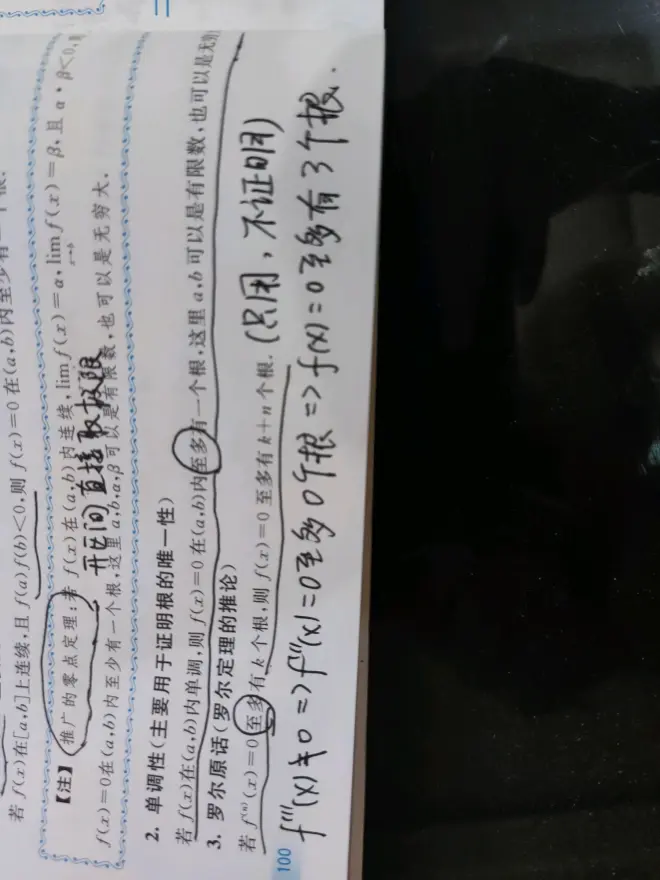 若 f(x)在[a,b]上连续,且 f(a)f(b)<0,则 f(x)=0 在(a,b)内至少有一个根.
【注】推广的零点定理:若 f(x)在(a,b)内连续,lim f(x)=α,lim f(x)=β,且 α·β<0,则
x→b
开区间直接取极限
f(x)=0在(a,b)内至少有一个根,这里 a,b,α,β 可以是有限数,也可以是无穷大.
2. 单调性(主要用于证明根的唯一性)
若 f(x)在(a,b)内单调,则 f(x)=0 在(a,b)内至多有一个根,这里 a,b 可以是有限数,也可以是无穷
3. 罗尔原话(罗尔定理的推论)
若 f⁽ⁿ⁾(x)=0 至多有 k 个根,则 f(x)=0 至多有 k+n 个根. (只用,不证明)
f'''(x)≠0 => f'''(x)=0至多0个根 => f(x)=0至多有3个根.
100